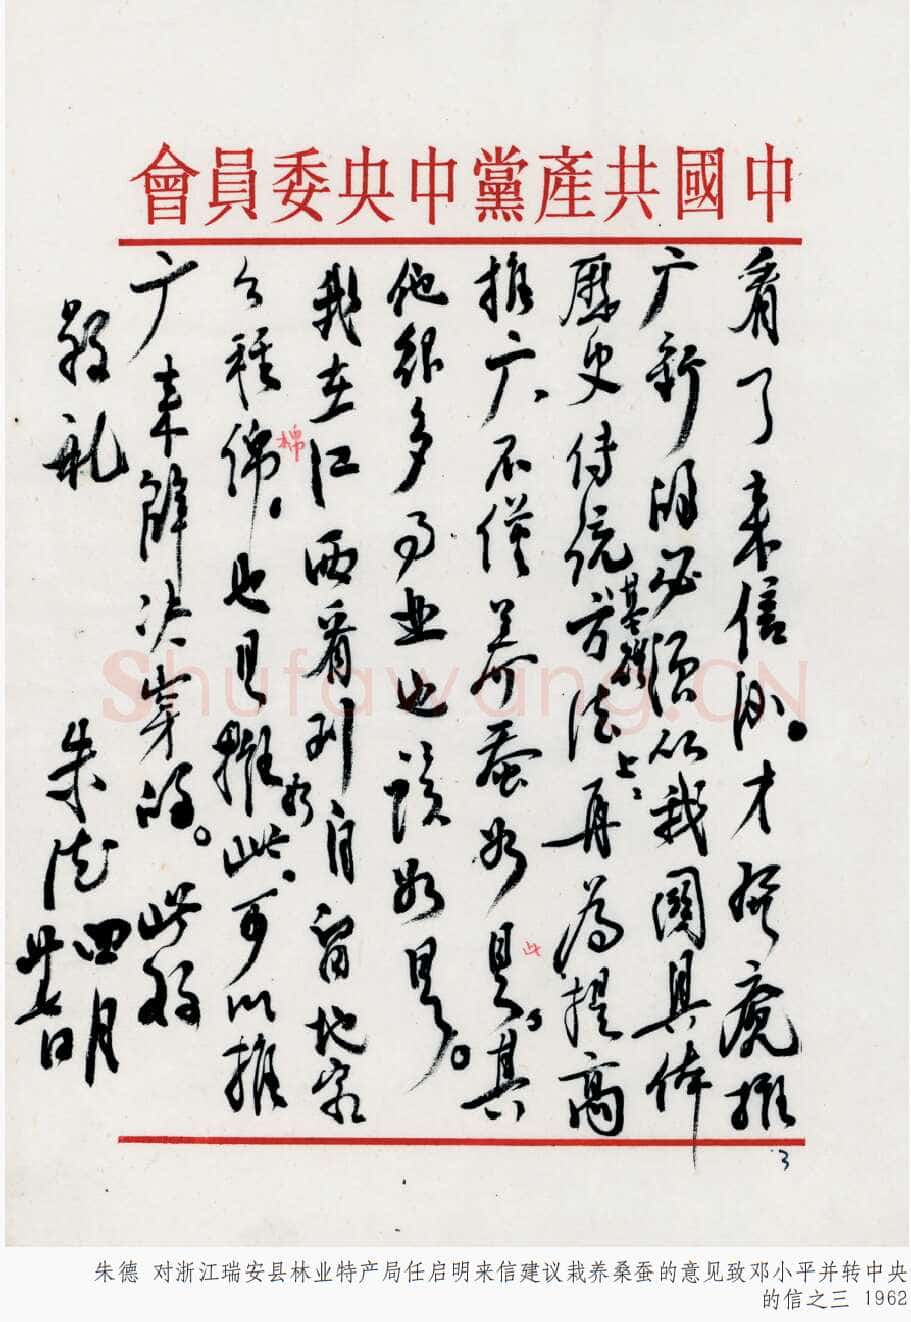 中國共產黨中央委員會
看了来信后。才發覺推
广新的必须从我國具体
歷史传统方法基礎上再為提高
推广、不僅养蚕如是此其
他很多事业也該如是。
我在江西看到自留地家
々種绵棉。也是如此。可以推
广来解决穿的。此致
敬礼
朱德
四月
廿七日
3
Shufawang.CN
朱德 对浙江瑞安县林业特产局任启明来信建议栽养桑蚕的意见致邓小平并转中央
的信之三 1962